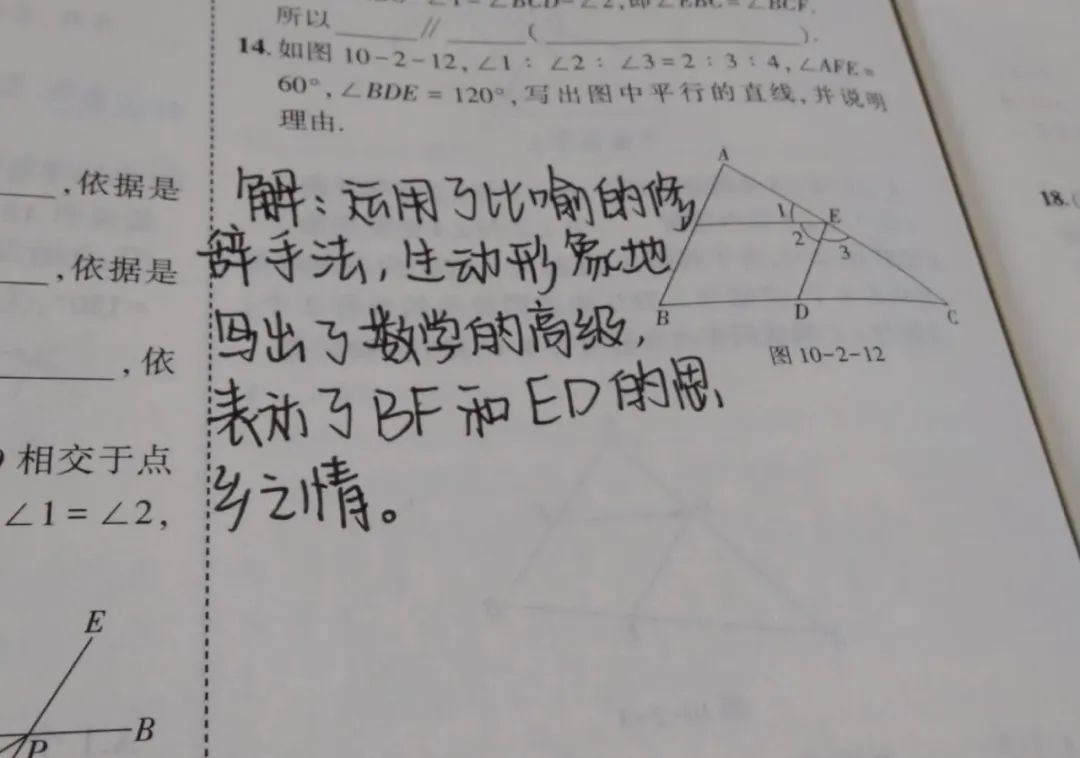 所以______∥______(______________).
14. 如图 10-2-12,∠1∶∠2∶∠3=2∶3∶4,∠AFE=
60°,∠BDE=120°,写出图中平行的直线,并说明
理由.
解：运用了比喻的修
辞手法，生动形象地
写出了数学的高级，
表示了BF和ED的思
乡之情。
A
1
E
2
3
B
D
C
图 10-2-12
,依据是
,依据是
,依
相交于点
∠1=∠2,
E
B
P
18.